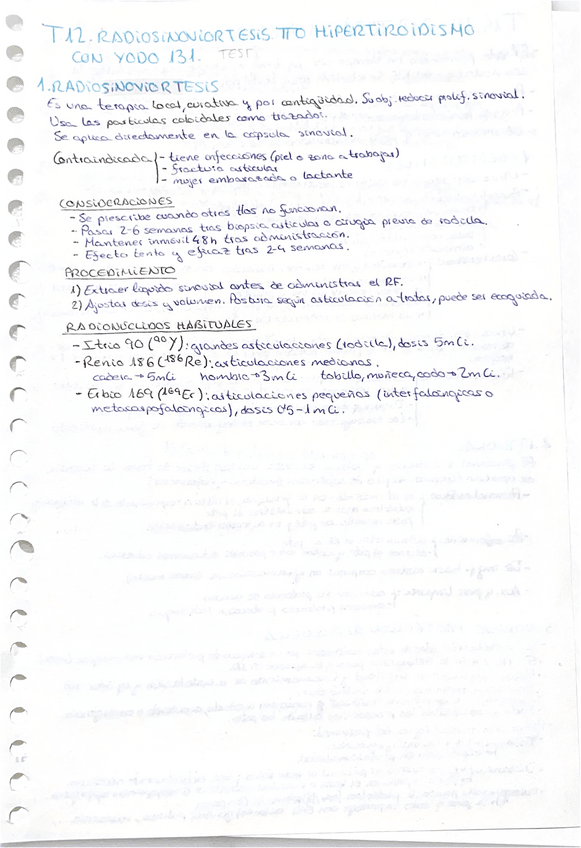 T12. RADIOSINOVIORTESIS. TTO HIPERTIROIDISMO
CON YODO 131. TEST
1. RADIOSINOVIORTESIS
Es una terapia local, curativa y por contigüidad. Su obj. reducir prolif. sinovial.
Usa las partículas coloidales como trazador.
Se aplica directamente en la cápsula sinovial.
Contraindicada - tiene infecciones (piel o zona a trabajar)
- fractura articular
- mujer embarazada o lactante
CONSIDERACIONES
- Se prescribe cuando otros ttos no funcionan.
- Pasar 2-6 semanas tras biopsia articular o cirugía previa de rodilla.
- Mantener inmóvil 48h tras administración.
- Efecto lento y eficaz tras 2-4 semanas.
PROCEDIMIENTO
1) Extraer líquido sinovial antes de administrar el RF.
2) Ajustar dosis y volumen. Postura según articulación a tratar, puede ser ecoguiada.
RADIONÚCLIDOS HABITUALES
- Itrio 90 (⁹⁰Y): grandes articulaciones (rodilla), dosis 5mCi.
- Renio 186 (¹⁸⁶Re): articulaciones medianas.
cadera → 5mCi hombro → 3mCi tobillo, muñeca, codo → 2mCi.
- Erbio 169 (¹⁶⁹Er): articulaciones pequeñas (interfalángicas o
metacarpofalángicas), dosis 0'5-1mCi.